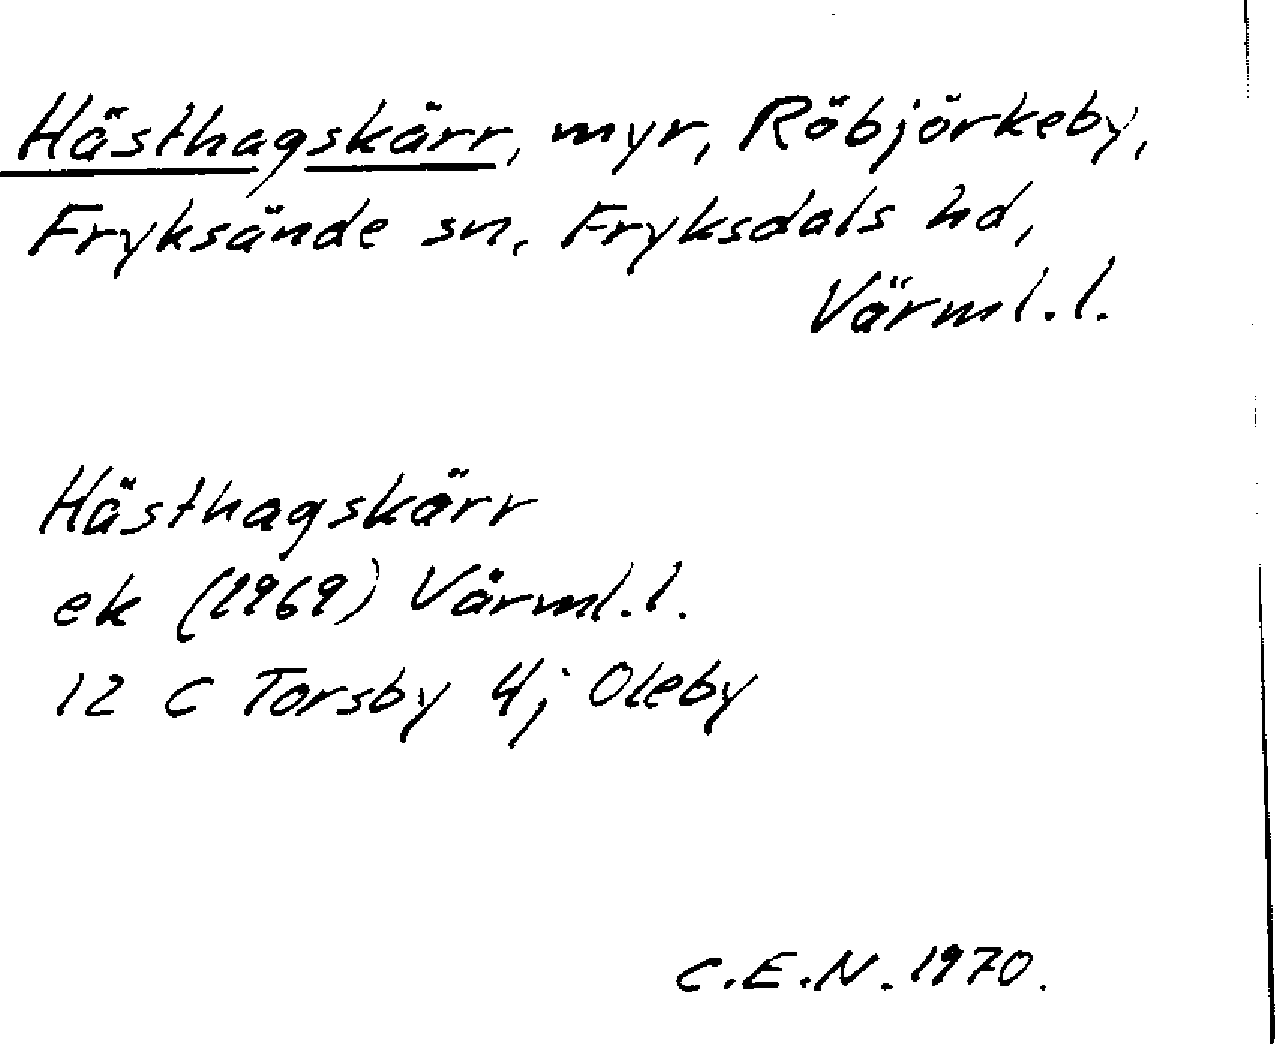 Hästhagskärr, myr, Röbjörkeby,
Fryksände sn, Fryksdals hd,
Värml.l.
Hästhagskärr
ek (1969) Värml.l.
12 C Torsby 4j Oleby
C.E.N. 1970.